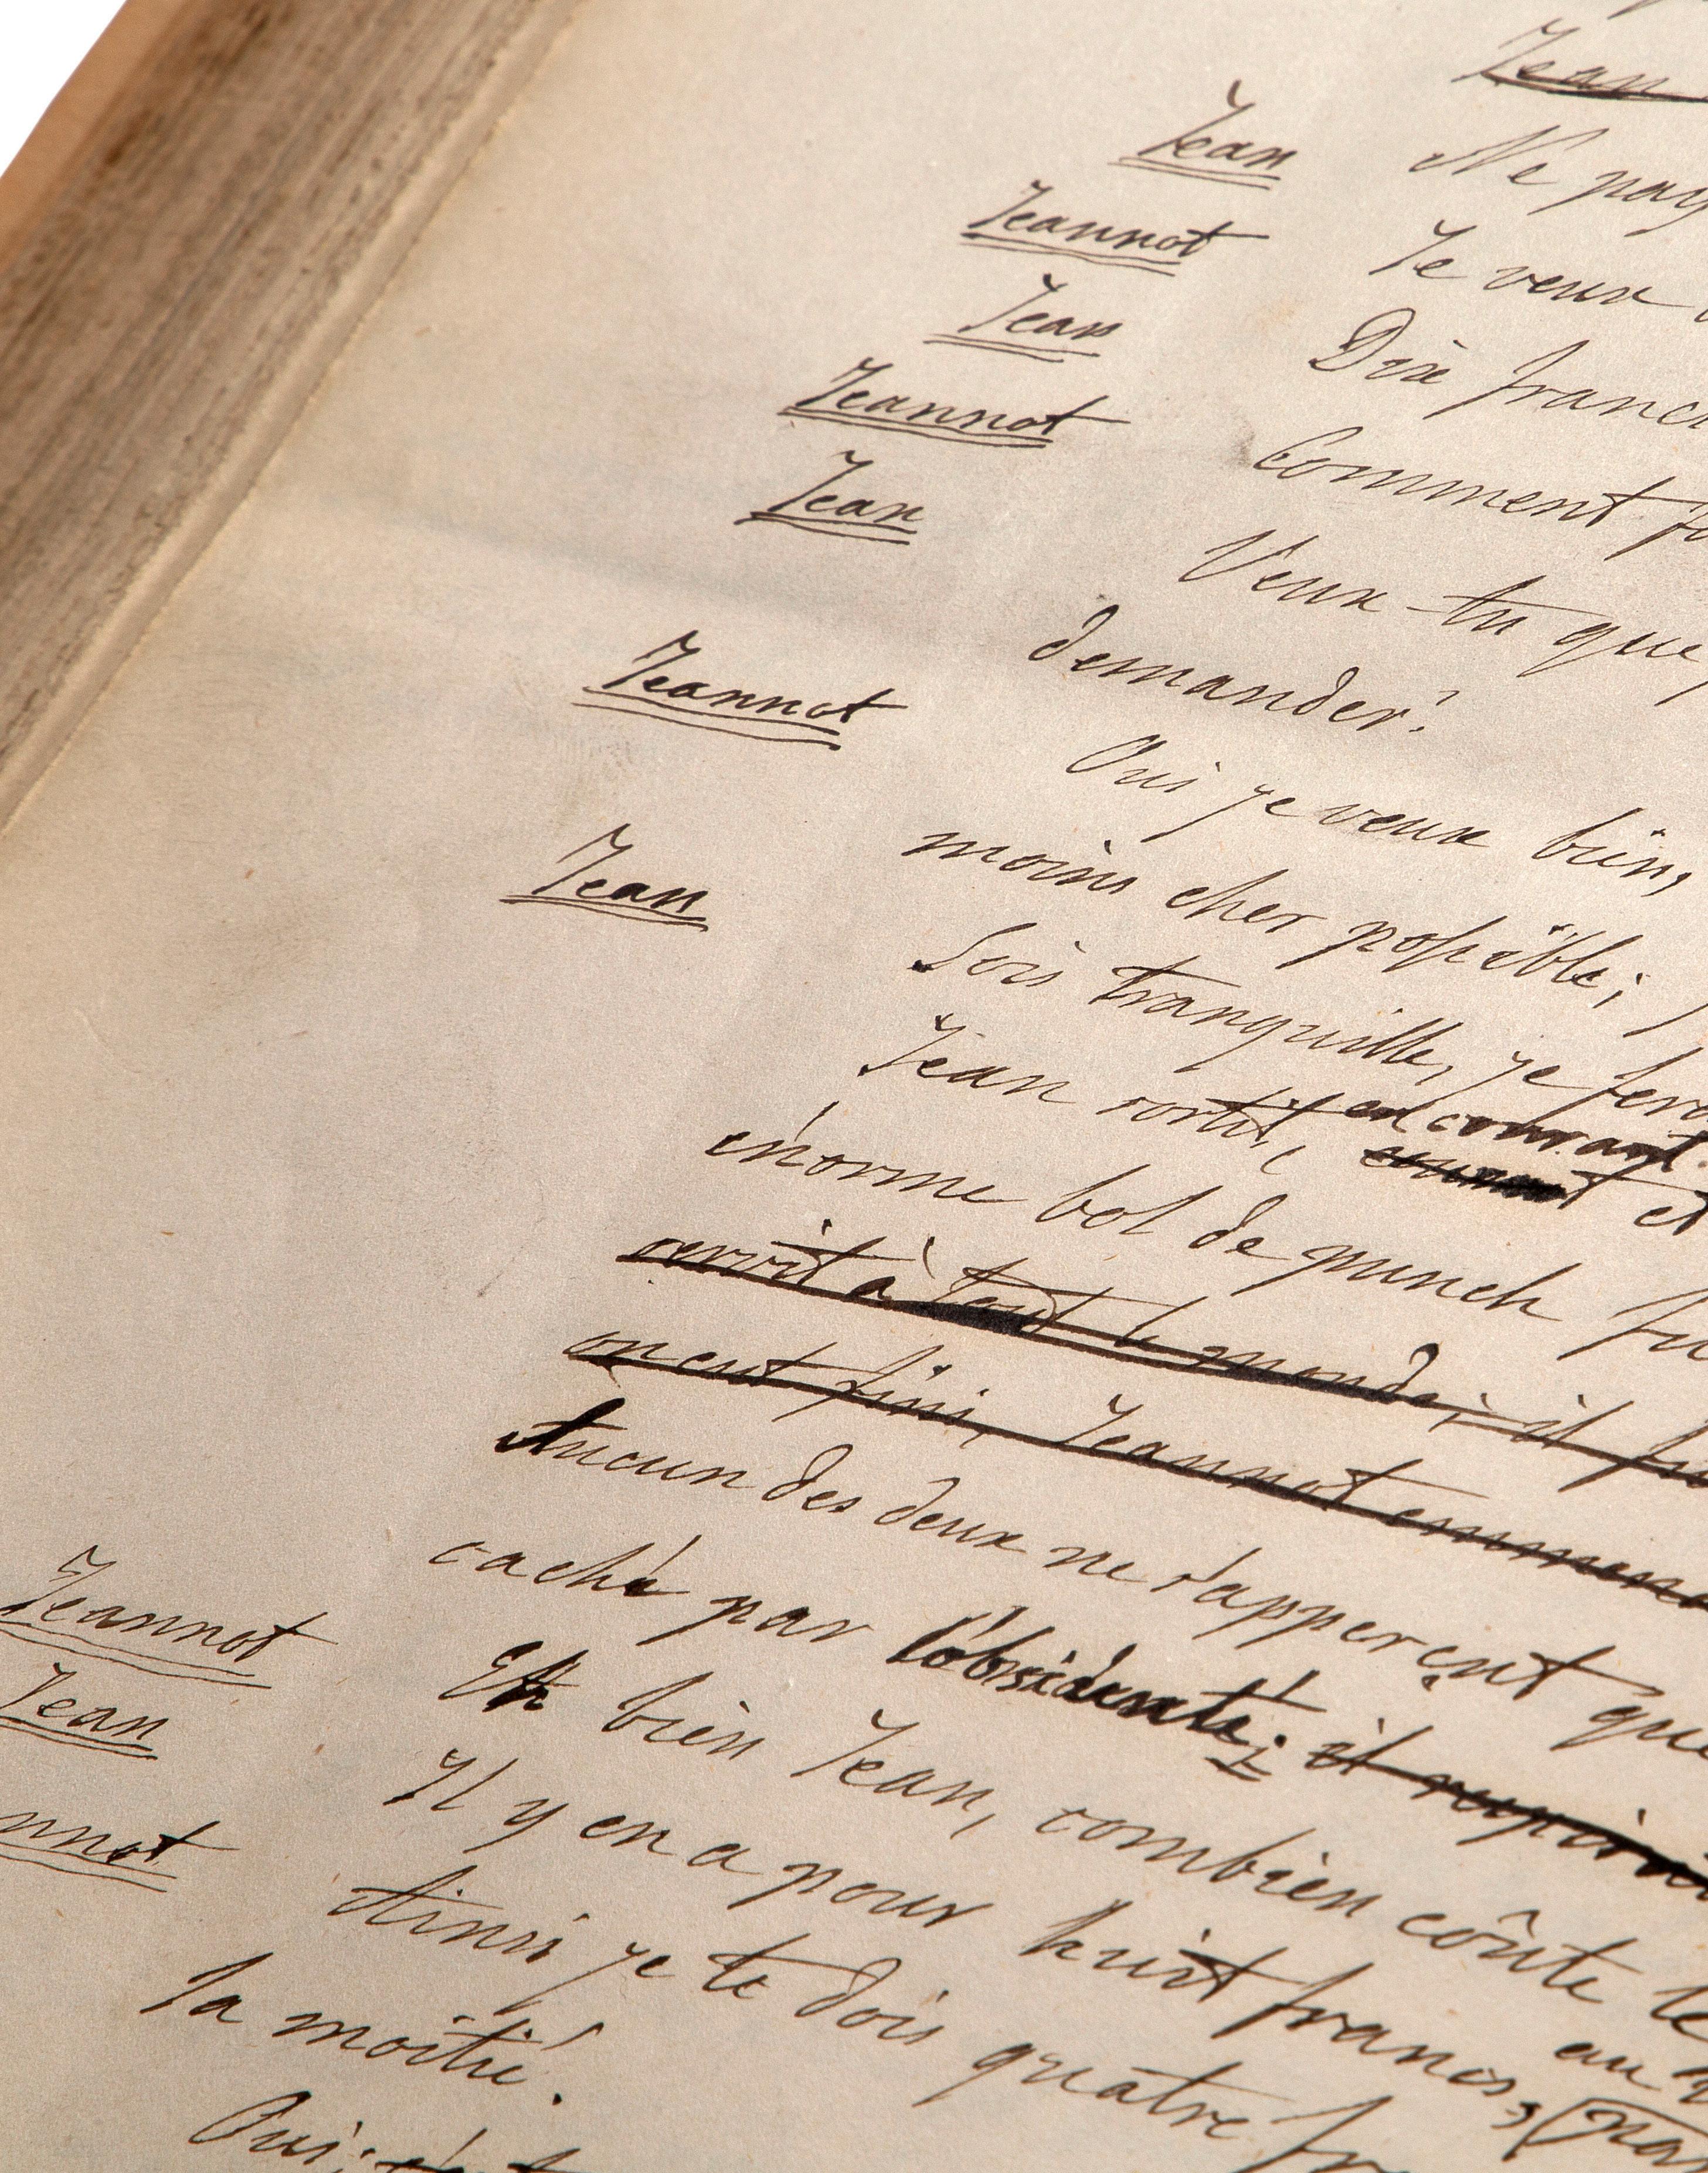 Jean
Jean Ne pay
Jeannot Je veux
Jean Dix francs
Jeannot Comment
Jean Veux-tu que
demander?
Jeannot Oui je veux bien,
moins cher possible;
Jean Sois tranquille, je fera
Jean sortit, en courant
et
énorme bol de punch fu
servit à tout le monde; il fu
on eut fini, Jeannot emmena
Aucun des deux ne s'apperçut que
caché par l'obscurité; il
Jeannot Eh bien Jean, combien coûte le
Jean Il y en a pour huit francs, au
nnot Ainsi je te dois quatre fr
la moitié.
Oui;